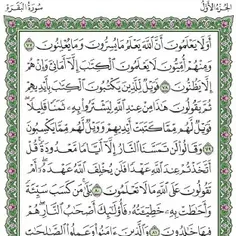 الجزء الأول
سورة البقرة
أولا يعلمون أن الله يعلم ما يسرون وما يعلنون ٧٧
ومنهم أميون لا يعلمون الكتاب إلا أماني وإن هم
إلا يظنون ٧٨ فويل للذين يكتبون الكتاب بأيديهم
ثم يقولون هذا من عند الله ليشتروا به ثمنا قليلا
فويل لهم مما كتبت أيديهم وويل لهم مما يكسبون
٧٩ وقالوا لن تمسنا النار إلا أياما معدودة قل
أتخذتم عند الله عهدا فلن يخلف الله عهده أم
تقولون على الله ما لا تعلمون ٨٠ بلى من كسب سيئة
وأحاطت به خطيئته فأولئك أصحاب النار هم
فيها خالدون ٨١ والذين آمنوا وعملوا الصالحات